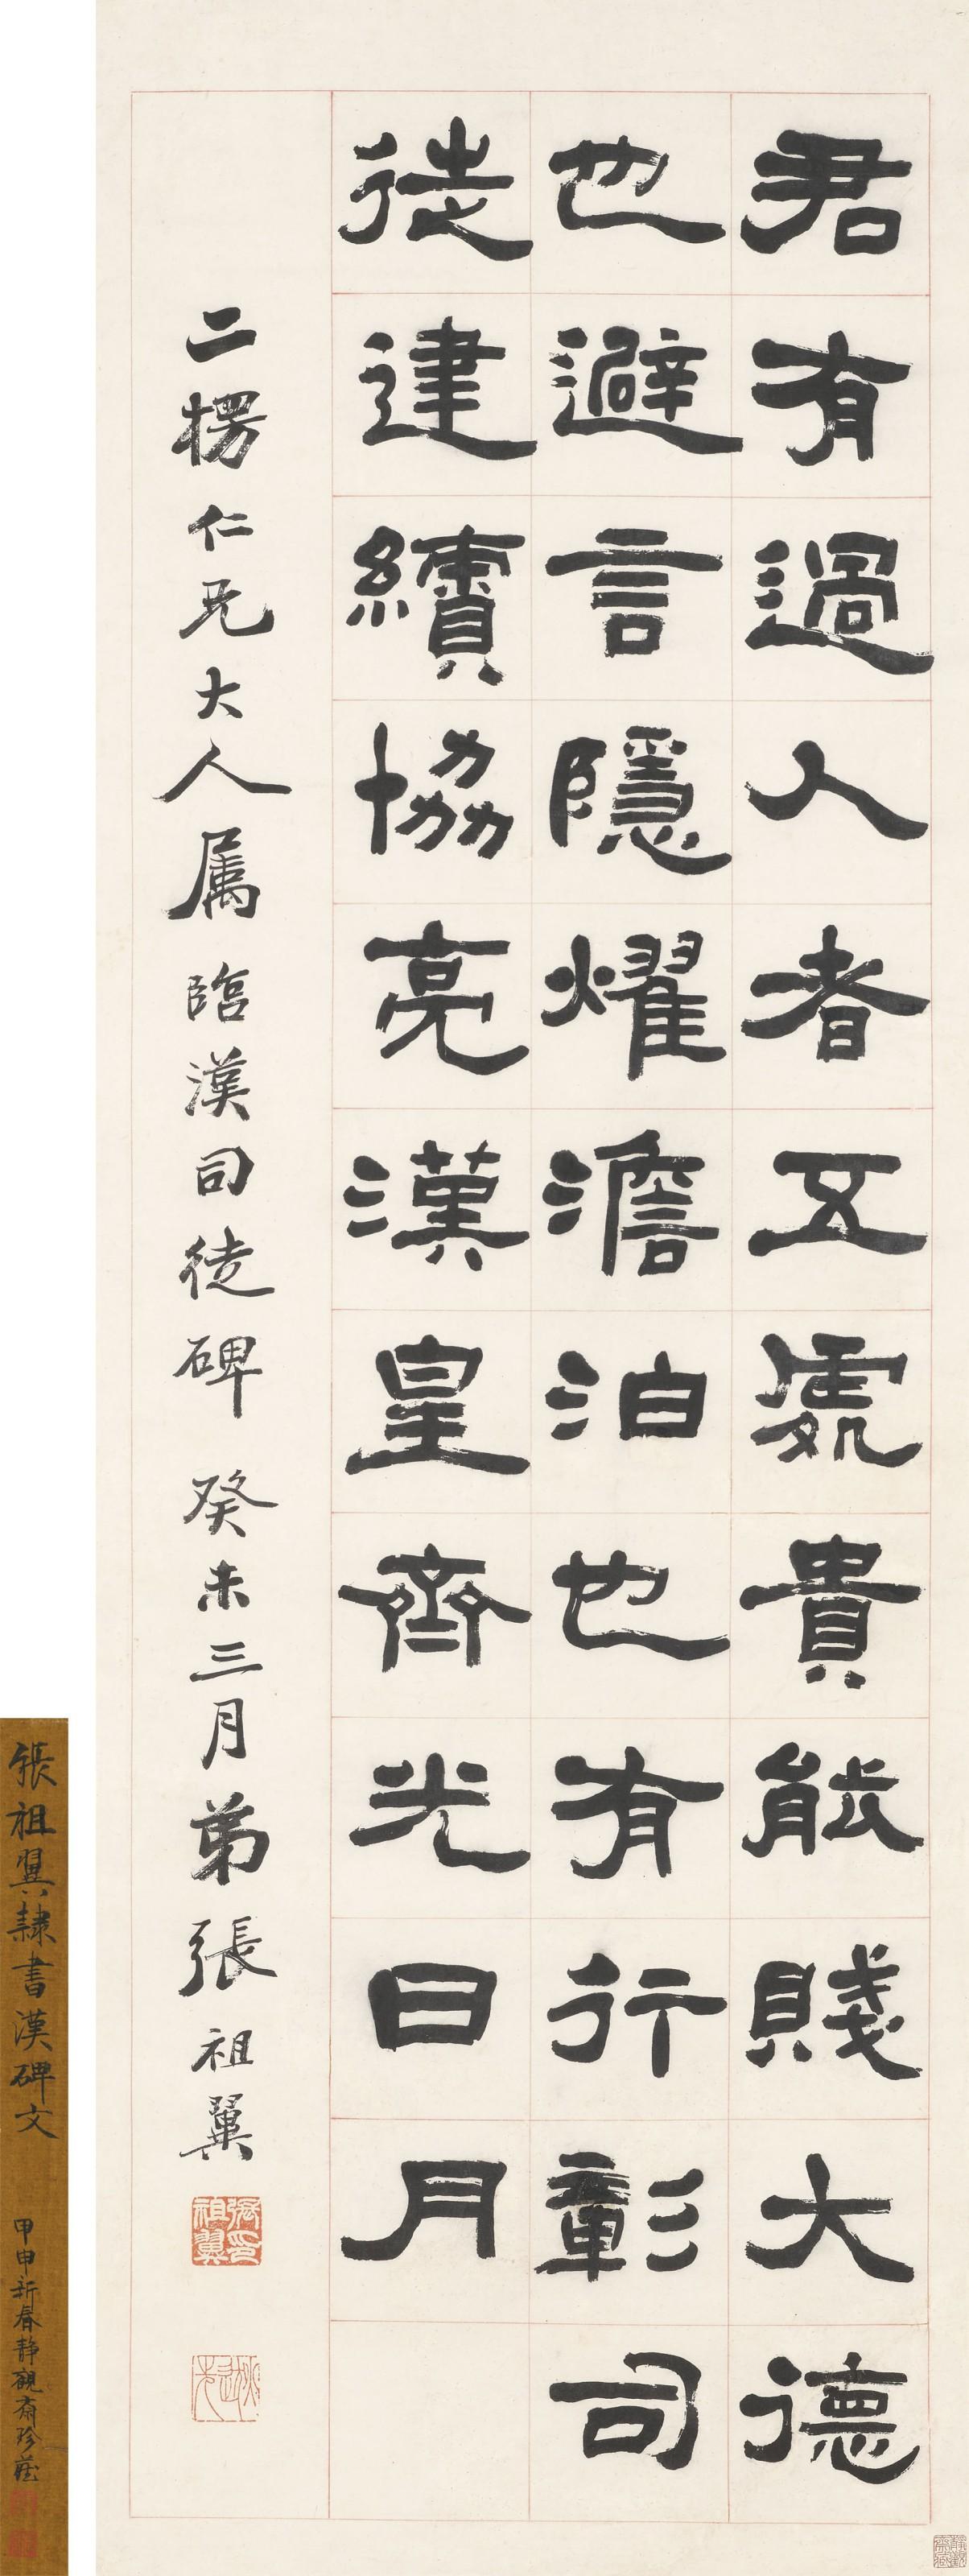 君有過人者五處貴能賤大德
也避言隱耀澹泊也有行彰司
徒建續協亮漢皇齊光日月
二楞仁兄大人属 臨漢司徒碑 癸未三月弟張祖翼
張祖翼印
張祖翼隸書漢碑文 甲申新春静觀齋珍藏